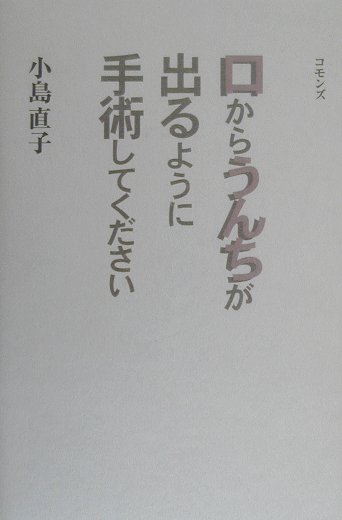 コモンズ
口からうんちが
出るように
手術してください
小島直子